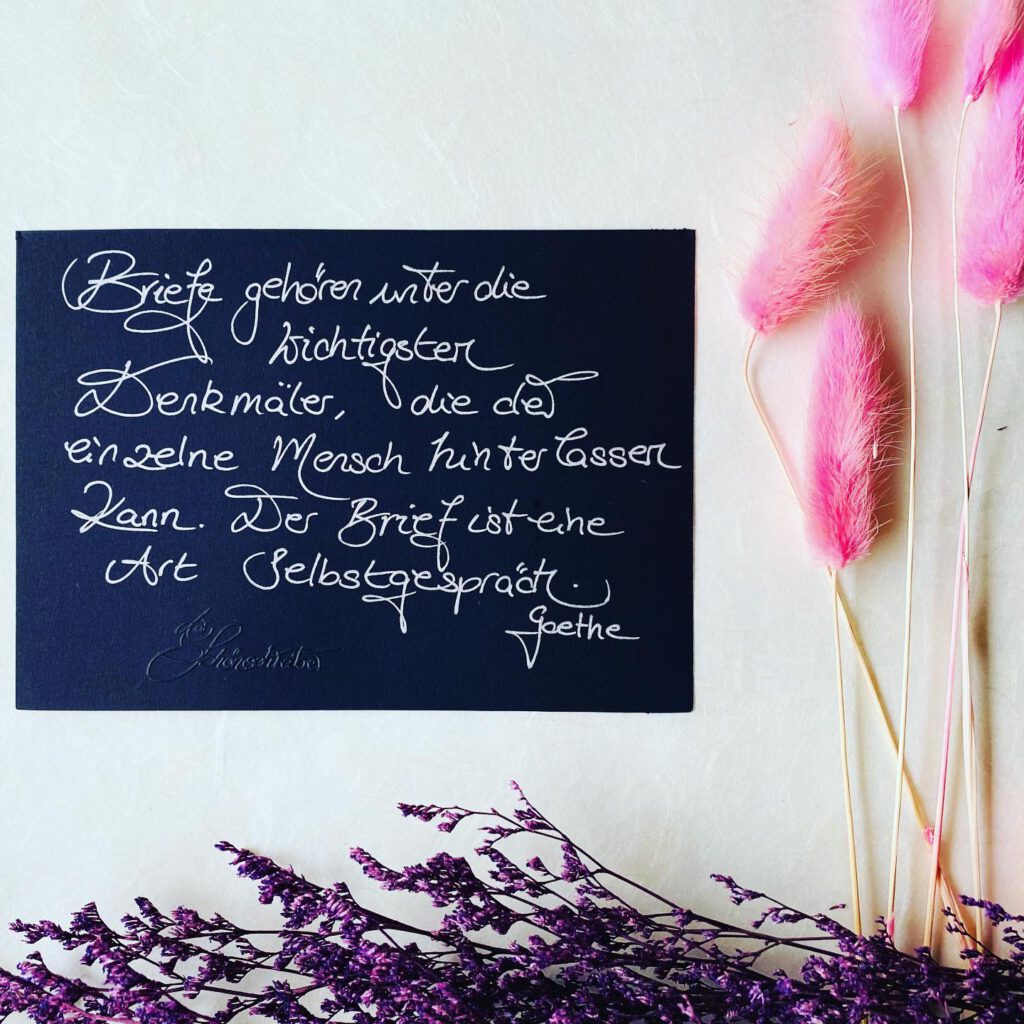 Briefe gehören unter die
wichtigsten
Denkmäler, die der
einzelne Mensch hinterlassen
kann. Der Brief ist eine
Art Selbstgespräch.
Goethe